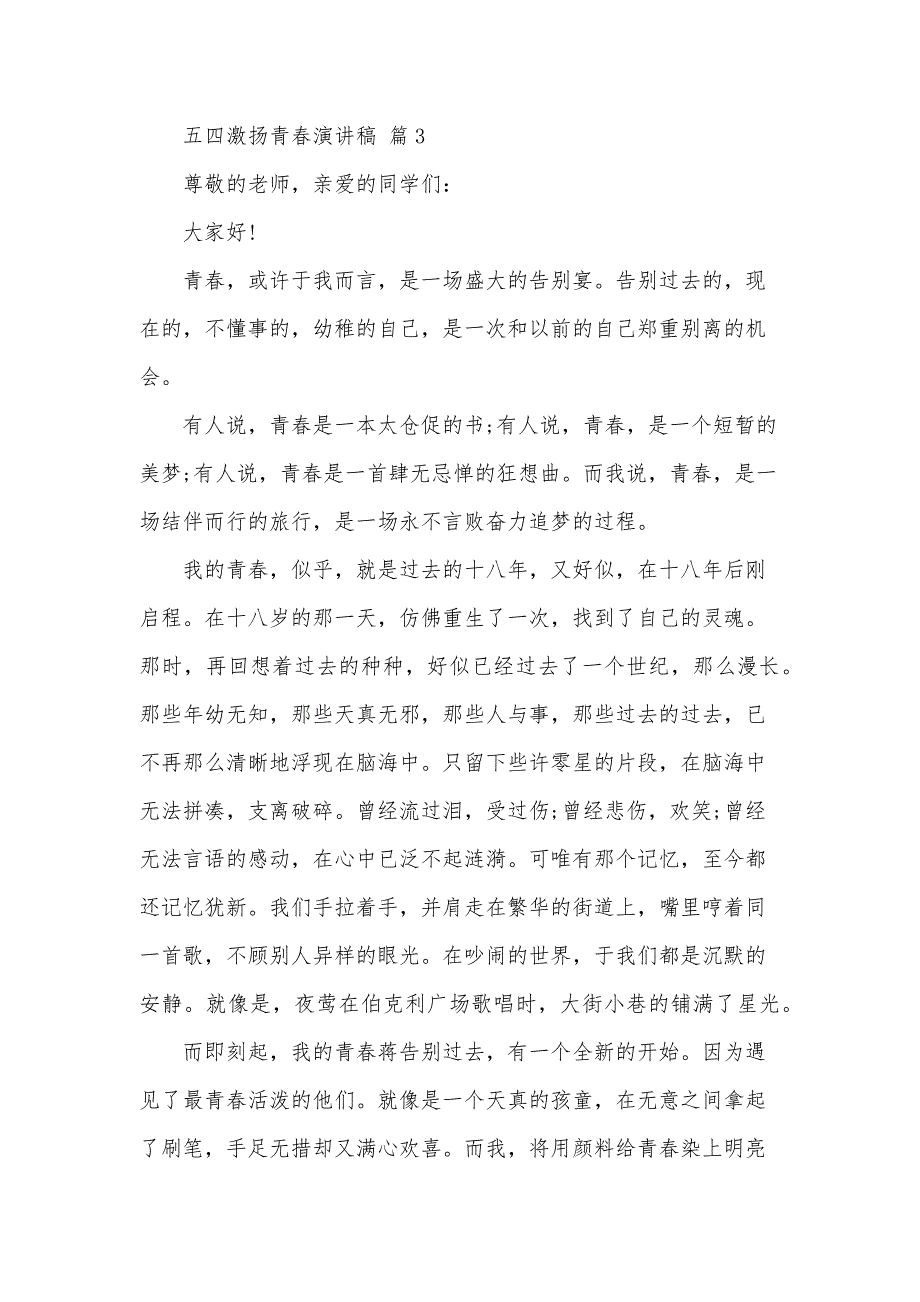 五四激扬青春演讲稿 篇3
尊敬的老师，亲爱的同学们：
大家好!
青春，或许于我而言，是一场盛大的告别宴。告别过去的，现
在的，不懂事的，幼稚的自己，是一次和以前的自己郑重别离的机
会。
有人说，青春是一本太仓促的书;有人说，青春，是一个短暂的
美梦;有人说，青春是一首肆无忌惮的狂想曲。而我说，青春，是一
场结伴而行的旅行，是一场永不言败奋力追梦的过程。
我的青春，似乎，就是过去的十八年，又好似，在十八年后刚
启程。在十八岁的那一天，仿佛重生了一次，找到了自己的灵魂。
那时，再回想着过去的种种，好似已经过去了一个世纪，那么漫长。
那些年幼无知，那些天真无邪，那些人与事，那些过去的过去，已
不再那么清晰地浮现在脑海中。只留下些许零星的片段，在脑海中
无法拼凑，支离破碎。曾经流过泪，受过伤;曾经悲伤，欢笑;曾经
无法言语的感动，在心中已泛不起涟漪。可唯有那个记忆，至今都
还记忆犹新。我们手拉着手，并肩走在繁华的街道上，嘴里哼着同
一首歌，不顾别人异样的眼光。在吵闹的世界，于我们都是沉默的
安静。就像是，夜莺在伯克利广场歌唱时，大街小巷的铺满了星光。
而即刻起，我的青春蒋告别过去，有一个全新的开始。因为遇
见了最青春活泼的他们。就像是一个天真的孩童，在无意之间拿起
了刷笔，手足无措却又满心欢喜。而我，将用颜料给青春染上明亮